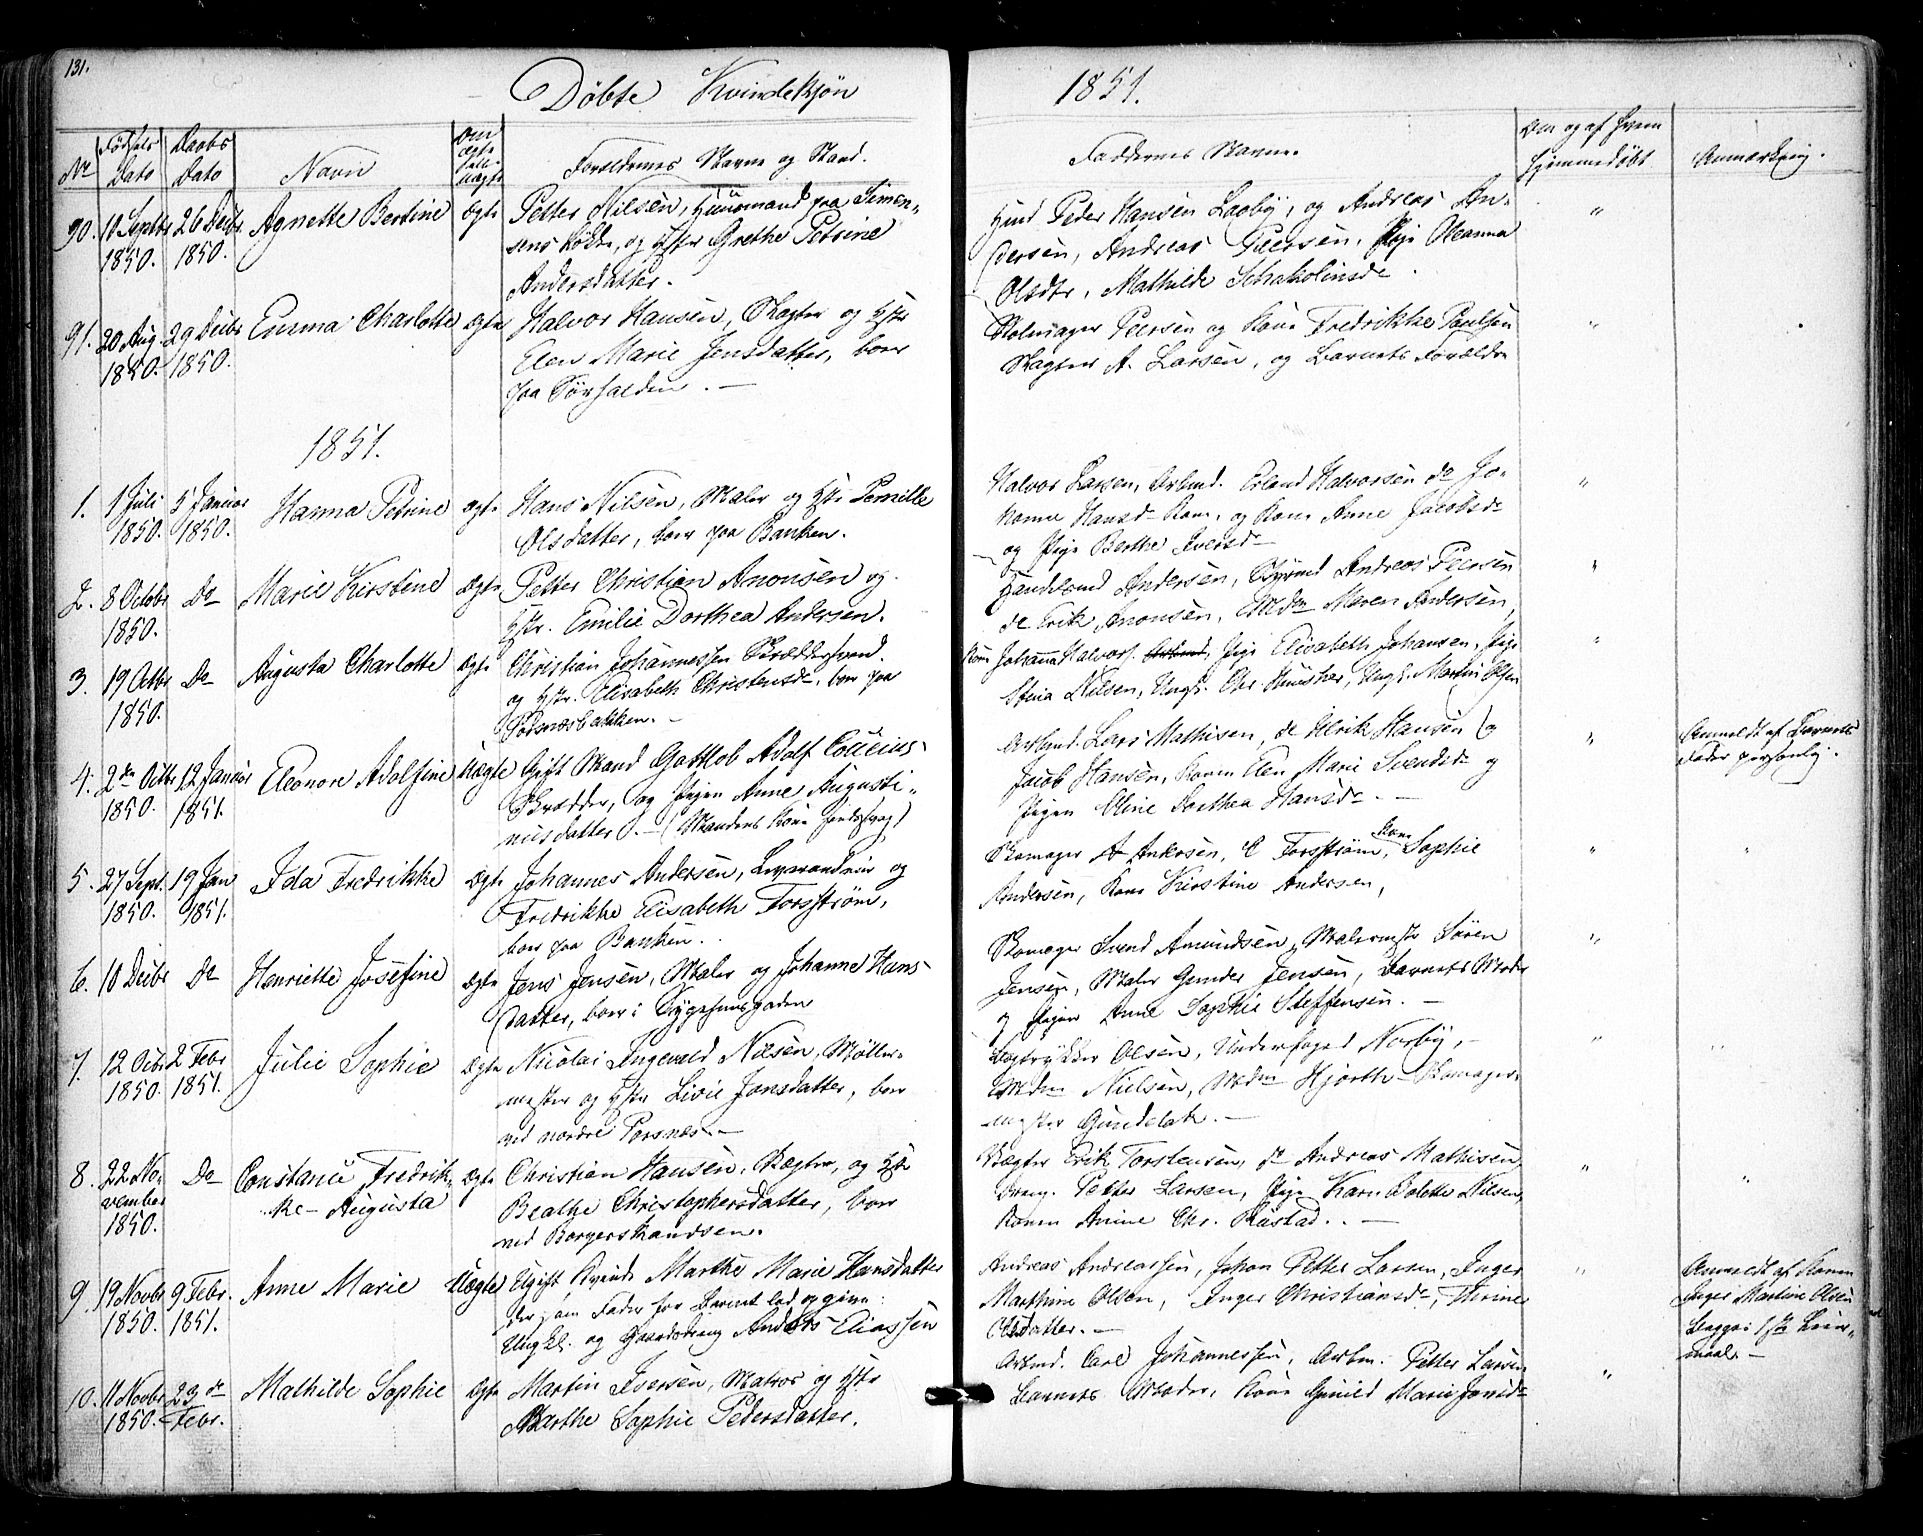 131.
Døbte Kvindekjøn 1851.
Nr Fødsels Dato Daabs Dato Navn Om ægte eller uægte Forældrenes Navne og Stand. Faddernes Navne. Om og af hvem hjemmedøbt Anmærkning.
90. 10 Septbr 1850. 26 Decbr 1850. Agnette Bertine ægte Petter Nilsen, Huusmand paa Simen-
sens Løkke, og Hstr Grethe Petrine
Andersdatter.
Peder Hansen Laoby, og Andreas An-
dersen, Andreas Peersen, Pige Oleanna
Olsdtr, Mathilde
"
91. 20 Aug. 1850. 29 Decbr 1850. Emma Charlotte ægte Halvor Hansen, og Hstr
Elen Marie Jensdatter, boer
paa
Peersen og Kone Fredrikke Paulsen
A. Larsen, og Barnets Forældre
"
1851.
1. 1 Juli 1850. 5 Januar 1850. Hanna Petrine ægte Hans Nilsen, Maler og Hstr Pernille
Olsdatter, boer paa Banken.
Halvor Larsen, Arbmd. Erland Halvorsen do Jo-
hanne Hansd Kone, og Kone Anne Jacobsd
og Pige Berthe Iversd
"
2. 8 Octobr 1850. Do Marie Kirstine ægte Petter Christian Anonsen og
Hstr. Emilie Dorthea Andersen.
Andersen, Andreas Peersen
do Erik Anonsen, Mdm Maren Andersen,
"
3. 19 Octbr 1850. Do Augusta Charlotte ægte Christian Johannessen Skræddersvend.
og Hstr. Elisabeth Christensd. boer paa
Kone Johanna Halvors. Pige Elisabeth Johansen, Pige
Stina Nilsen, Ungk. Chr. Ungk. Martin Olsen
"
4. 2den Octbr 1850. 12 Januar 1851. Eleonore Adolfine Uægte Gift Mand Gottlob Adolf
Skrædder, og Pigen Anne Augusti-
nusdatter. - (Mandens Kone
Arbmd. Lars Mathisen, do Ulrik Hansen og
Jacob Hansen, Konen Elen Marie Svendsd og
Pigen Oline Dorthea Hansd. -
"
Anmeldt af Barnets
Fader personlig.
5. 27 Sept. 1850. 19 Jan 1851. Ida Fredrikke ægte Johannes Andersen, og
Fredrikke Elisabeth Forsstrøm,
boer paa Banken.
Skomager A Andersen, C Forsstrøm, Kone Sophie
Andersen, Kone Kirstine Andersen,
"
6. 10 Decbr Do Henriette Josefine ægte Jens Jensen, Maler og Johanne Hans-
datter, boer i Sygehuusgaden
Skomager Svend Amundsen, Malermstr Sören
Jensen, Maler Gunder Jensen, Barnets Moder
og Pigen Anne Sophie Steffensen. -
"
7. 12 Octbr 1850. 2 Febr 1851. Julie Sophie ægte Nicolai Ingevald Nilsen, Møller-
mester og Hstr Livie Jonsdatter, boer
ved nordre Porsnæs. -
Bogtrykker Olsen, Underfoged Norby, -
Mdm Nielsen, Mdm Hjorth - Skomager-
mester Gundelak. -
"
8. 22 No-
vember 1850. Do Constance Fredrik-
ke Augusta ægte Christian Hansen, Vægter, og Hstr
Beathe Christophersdatter, boer
ved Borgerskandsen.
Vægter Erik Torstensen, do Andreas Mathisen
Dreng. Petter Larsen, Pige Karn Bolette Nilsen,
Konen Anine Chr. Rustad. . -
"
9. 19 Novbr. 1850. 9 Febr. 1851. Anne Marie Uægte Ugift Kvinde Marthe Marie Hansdatter
der som Fader for Barnet lod opgive:
Ungkl. og Gaardsdreng Anders Eliassen
Andreas Andreassen, Johan Petter Larsen, Inger
Marthine Olsen, Inger Christiansd, Thrine
Olsdatter. -
"
Anmeldt af Konen
Inger Martine Olsen
Begges 1ste Leier-
maal. -
10. 11 Novbr 1850. 23 de Febr. Mathilde Sophie ægte Martin Iversen, Matros og Hstr
Marthe Sophie Pedersdatter.
Arbmd. Carl Johannessen, Arbm. Petter Larsen
Barnets Moder, Kone Gunild Marie Jonsd
"